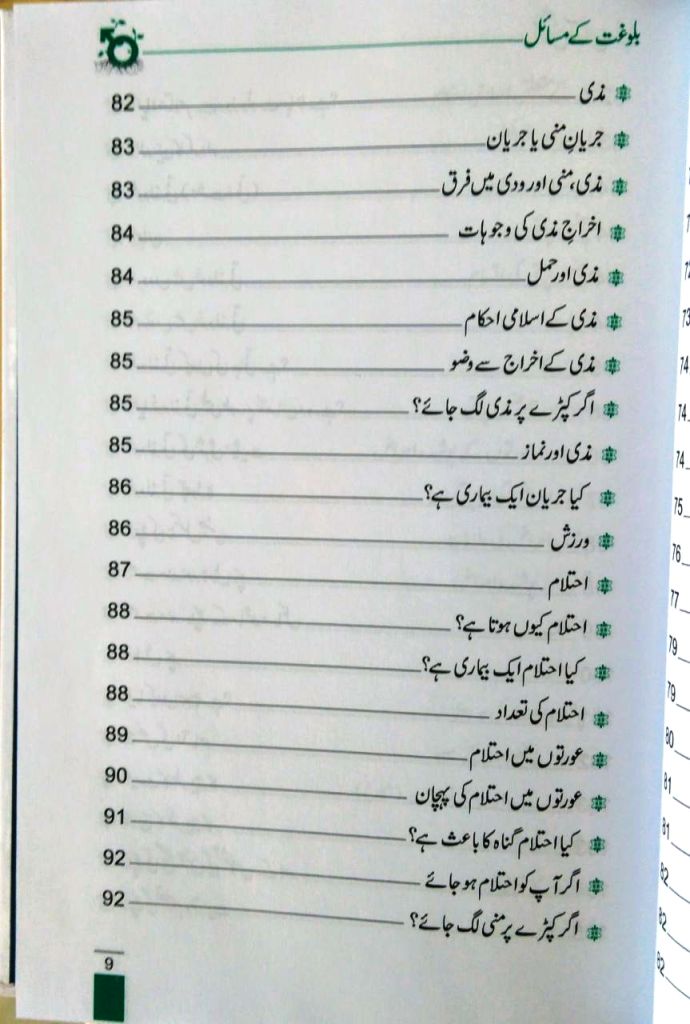 بلوغت کے مسائل
مذی 82
جریانِ منی یا جریان 83
مذی، منی اور ودی میں فرق 83
اخراجِ مذی کی وجوہات 84
مذی اور حمل 84
مذی کے اسلامی احکام 85
مذی کے اخراج سے وضو 85
اگر کپڑے پر مذی لگ جائے؟ 85
مذی اور نماز 85
کیا جریان ایک بیماری ہے؟ 86
ورزش 86
احتلام 87
احتلام کیوں ہوتا ہے؟ 88
کیا احتلام ایک بیماری ہے؟ 88
احتلام کی تعداد 88
عورتوں میں احتلام 89
عورتوں میں احتلام کی پہچان 90
کیا احتلام گناہ کا باعث ہے؟ 91
اگر آپ کو احتلام ہو جائے 92
اگر کپڑے پر منی لگ جائے؟ 92
9
73
74
74
74
75
76
77
79
79
80
81
81
82
82
82